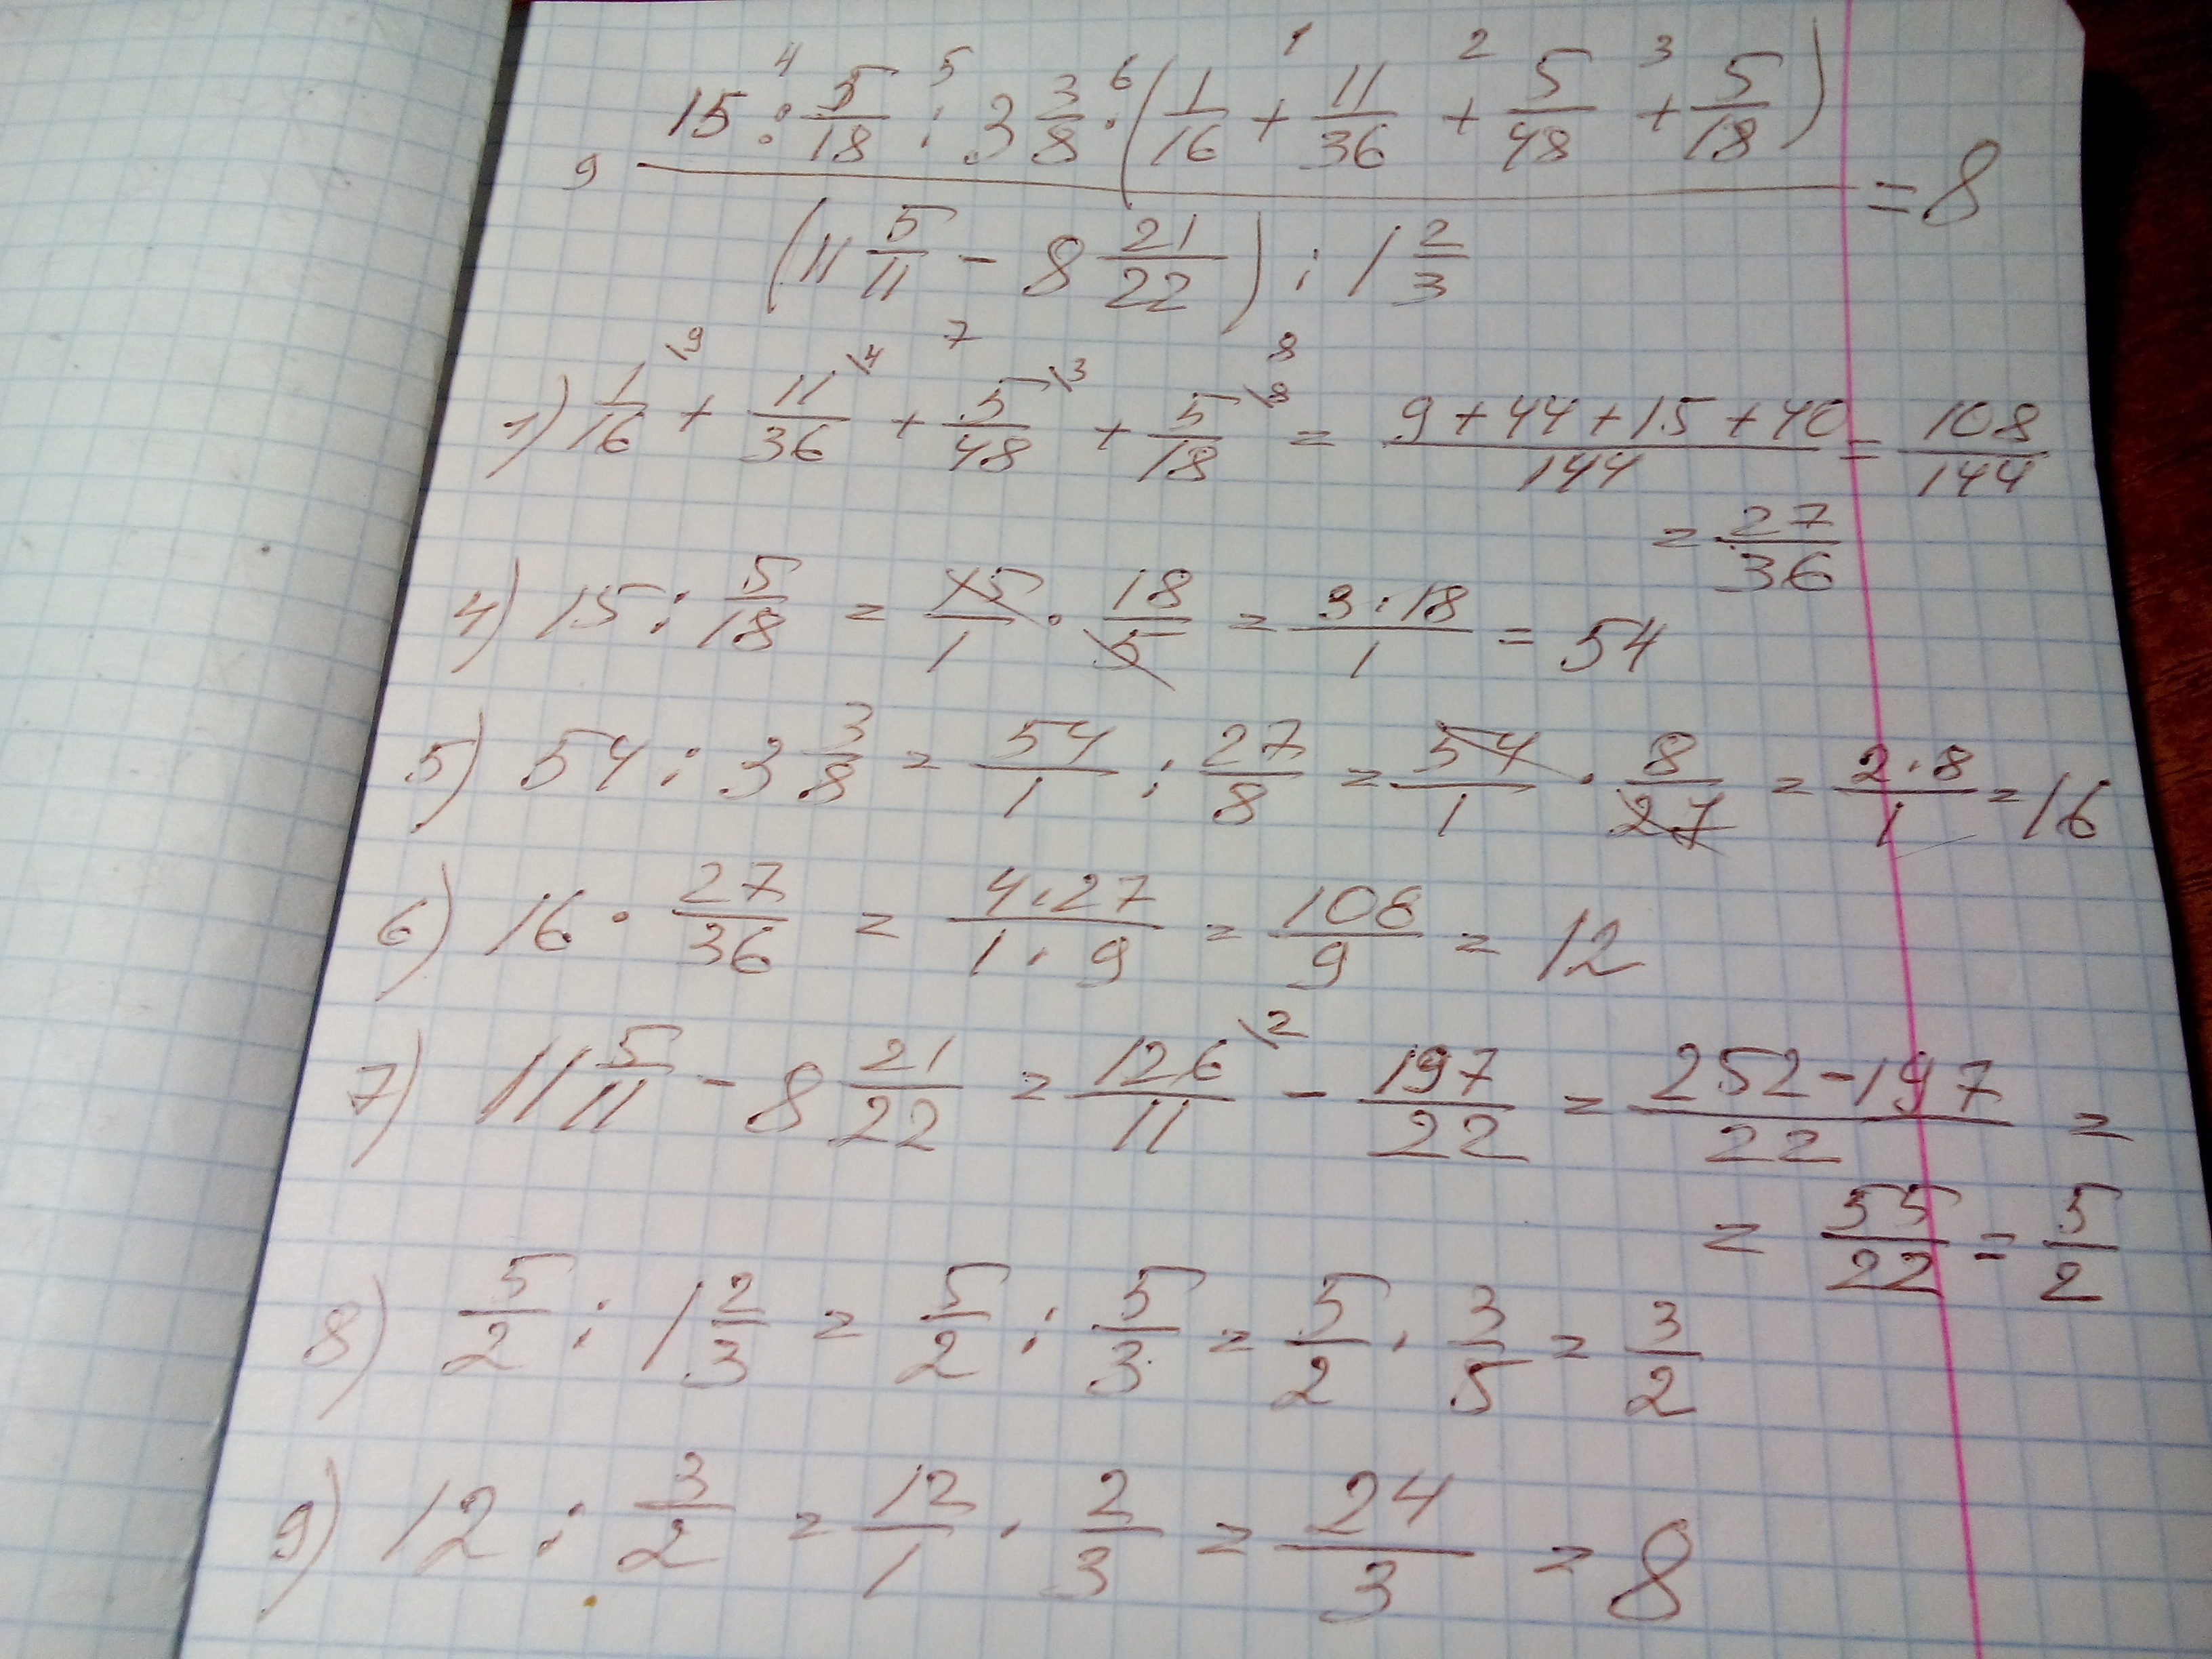 15 : 5/18 : 3 3/8 · (1/16 + 11/36 + 5/48 + 5/18)
4 5 6 1 2 3
9 = 8
(11 5/11 - 8 21/22) : 1 2/3
7 8
1) 1/16 \9 + 11/36 \4 + 5/48 \3 + 5/18 \8 = 9+44+15+40/144 = 108/144
= 27/36
4) 15 : 5/18 = 15/1 · 18/5 = 3·18/1 = 54
5) 54 : 3 3/8 = 54/1 : 27/8 = 54/1 · 8/27 = 2·8/1 = 16
6) 16 · 27/36 = 4·27/1·9 = 108/9 = 12
7) 11 5/11 - 8 21/22 = 126/11 \2 - 197/22 = 252-197/22 =
= 55/22 = 5/2
8) 5/2 : 1 2/3 = 5/2 : 5/3 = 5/2 · 3/5 = 3/2
9) 12 : 3/2 = 12/1 · 2/3 = 24/3 = 8